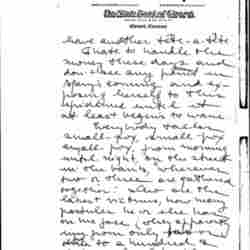 The State Bank of Girard
Girard, Kansas
have another tête-a-tête
I hate to handle the
money these days and
don't see any point in
coming and ex-
posing herself to this
epidemic until it
at least begins to wane.
Everybody talks
small-pox, small-pox
small-pox, from morning
until night, on the street
in the bank, wherever
two or three are gathered
together. Who are the
latest victims, how many
pustules he or she has
on his face, when apparently
from only
dozen to a hundred